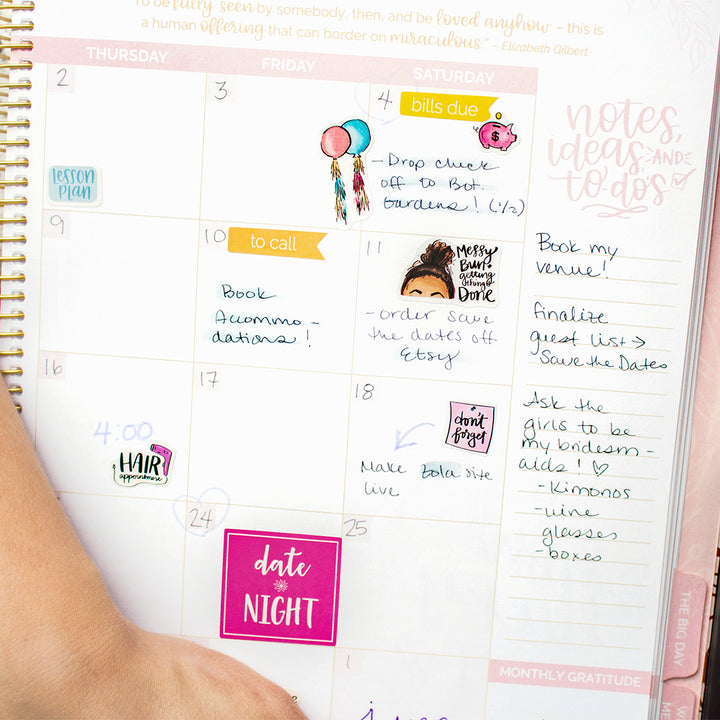 To be fully seen by somebody, then, and be loved anyhow - this is
a human offering that can border on miraculous." - Elizabeth Gilbert
THURSDAY
FRIDAY
SATURDAY
notes,
ideas, AND
to do's
2
lesson
plan
3
4
bills due
$
- Drop check
off to Bot.
Gardens! (1/2)
9
10
to call
Book
Accommo-
dations!
11
Messy
Bun &
getting
things
Done
- order save
the dates off
Etsy
16
4:00
HAIR
appointment
17
18
don't
forget
Make Zola site
live
24
date
NIGHT
25
1
Book my
venue!
finalize
guest list →
Save the Dates
Ask the
girls to be
my bridesm-
aids! ♡
- Kimonos
- wine
glasses
- boxes
MONTHLY GRATITUDE
THE BIG DAY